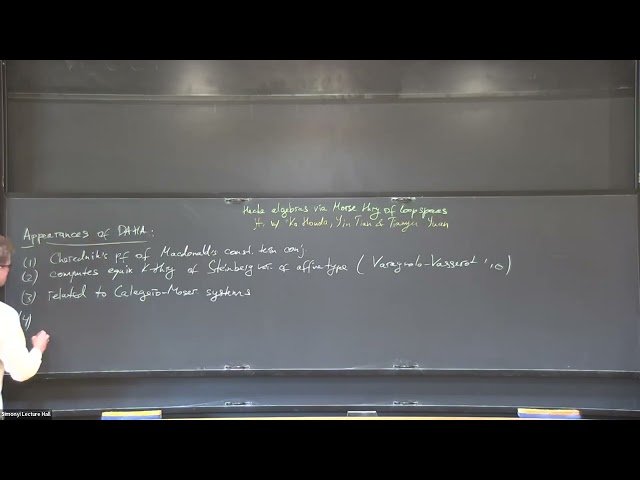 Hecke algebras via Morse thry of loop spaces
jt. w/ Ko Honda, Yin Tian & Tianyu Yuan
Appearances of DAHA:
(1) Cherednik's pf of Macdonald's const. term conj.
(2) computes equiv. K-thry of Steinberg var. of affine type (Varagnolo-Vasserot '10)
(3) related to Calogero-Moser systems
(4)
Simonyi Lecture Hall